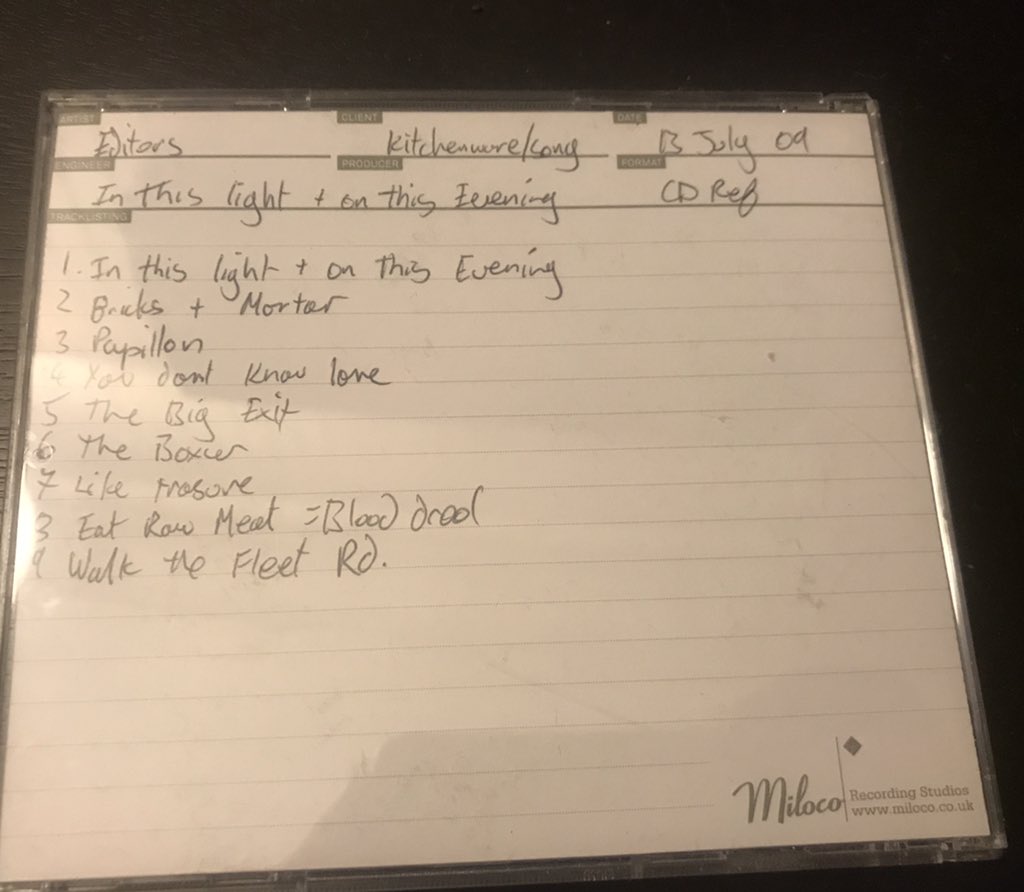 ARTIST CLIENT DATE
Editors Kitchenware/Sony 13 July 09
ENGINEER PRODUCER FORMAT
In this light + on this Evening CD Ref
TRACKLISTING
1. In this light + on this Evening
2 Bricks + Mortar
3 Papillon
4 You dont know love
5 The Big Exit
6 The Boxer
7 Like Treasure
8 Eat Raw Meat = Blood drool
9 Walk the Fleet Rd.
Miloco Recording Studios
www.miloco.co.uk